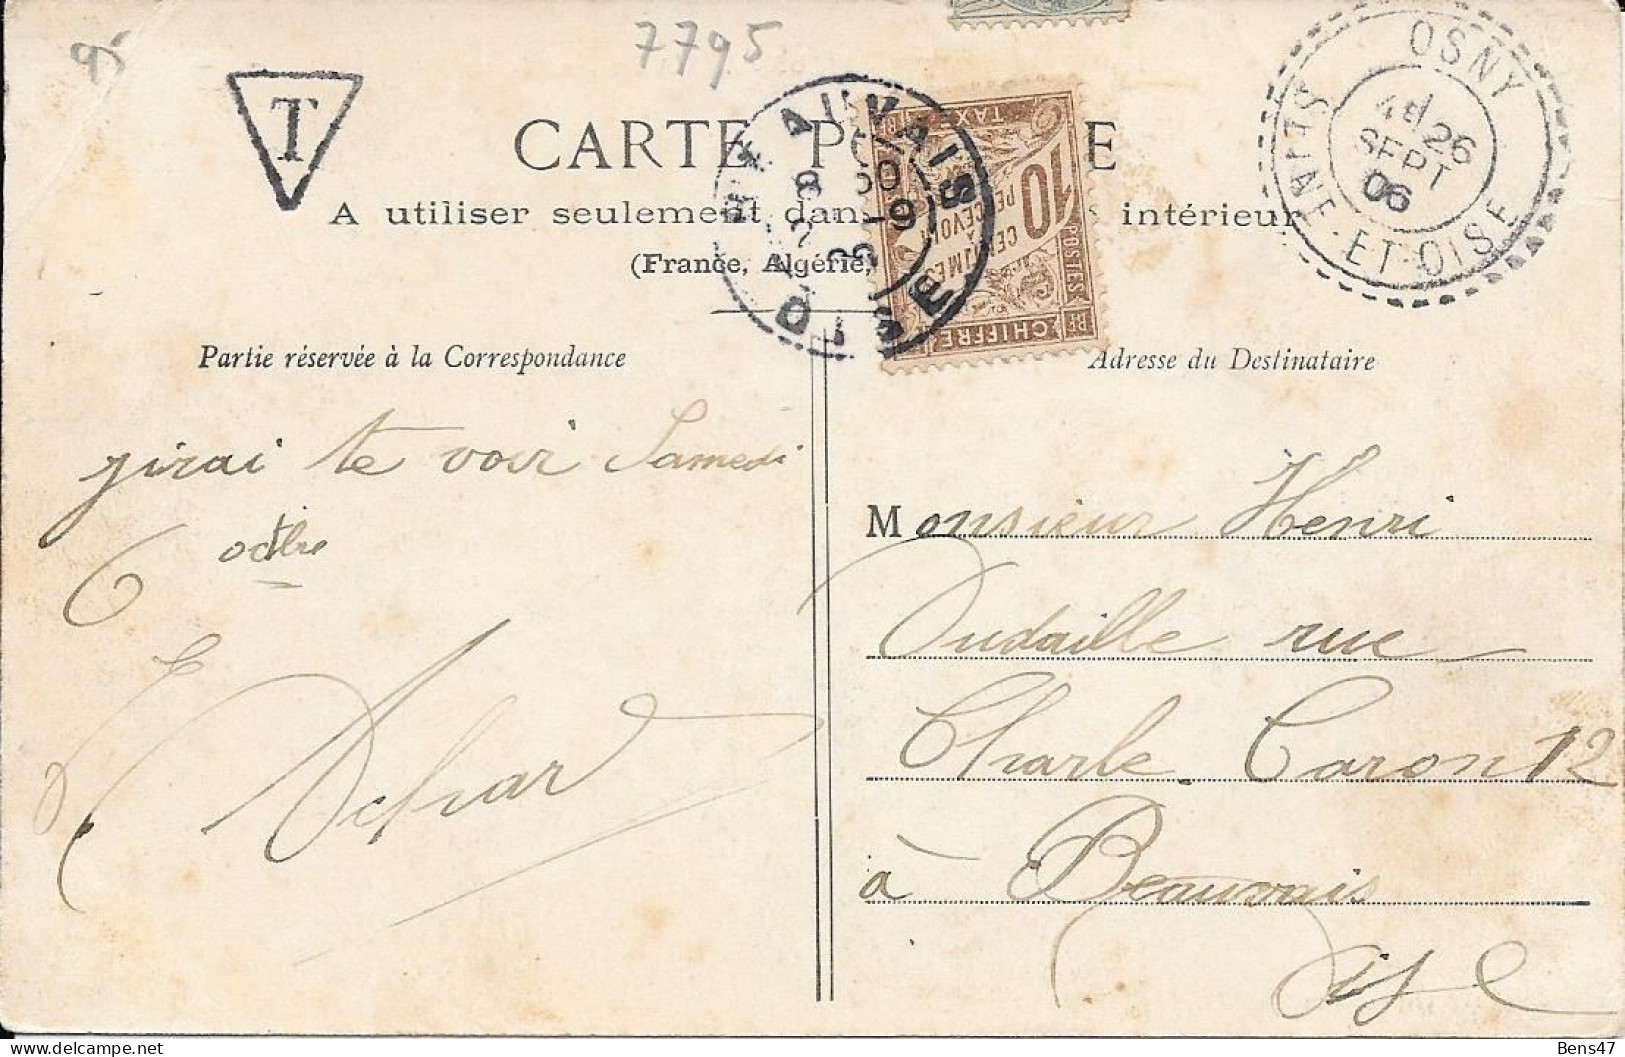 95
7795
T
CARTE PO E
A utiliser seulement dan s intérieur
(France, Algérie,
BEAUVAIS
OISE
10
CENTIMES
À
PERCEVOIR
CHIFFRE
TAX
POSTES
RF
OSNY
SEINE-ET-OISE
26
SEPT
06
Partie réservée à la Correspondance
Adresse du Destinataire
jirai te voir Samedi
6 octbre
Monsieur Henri
Oudaille rue
Charle Caron 12
à Beauvais
Bens47